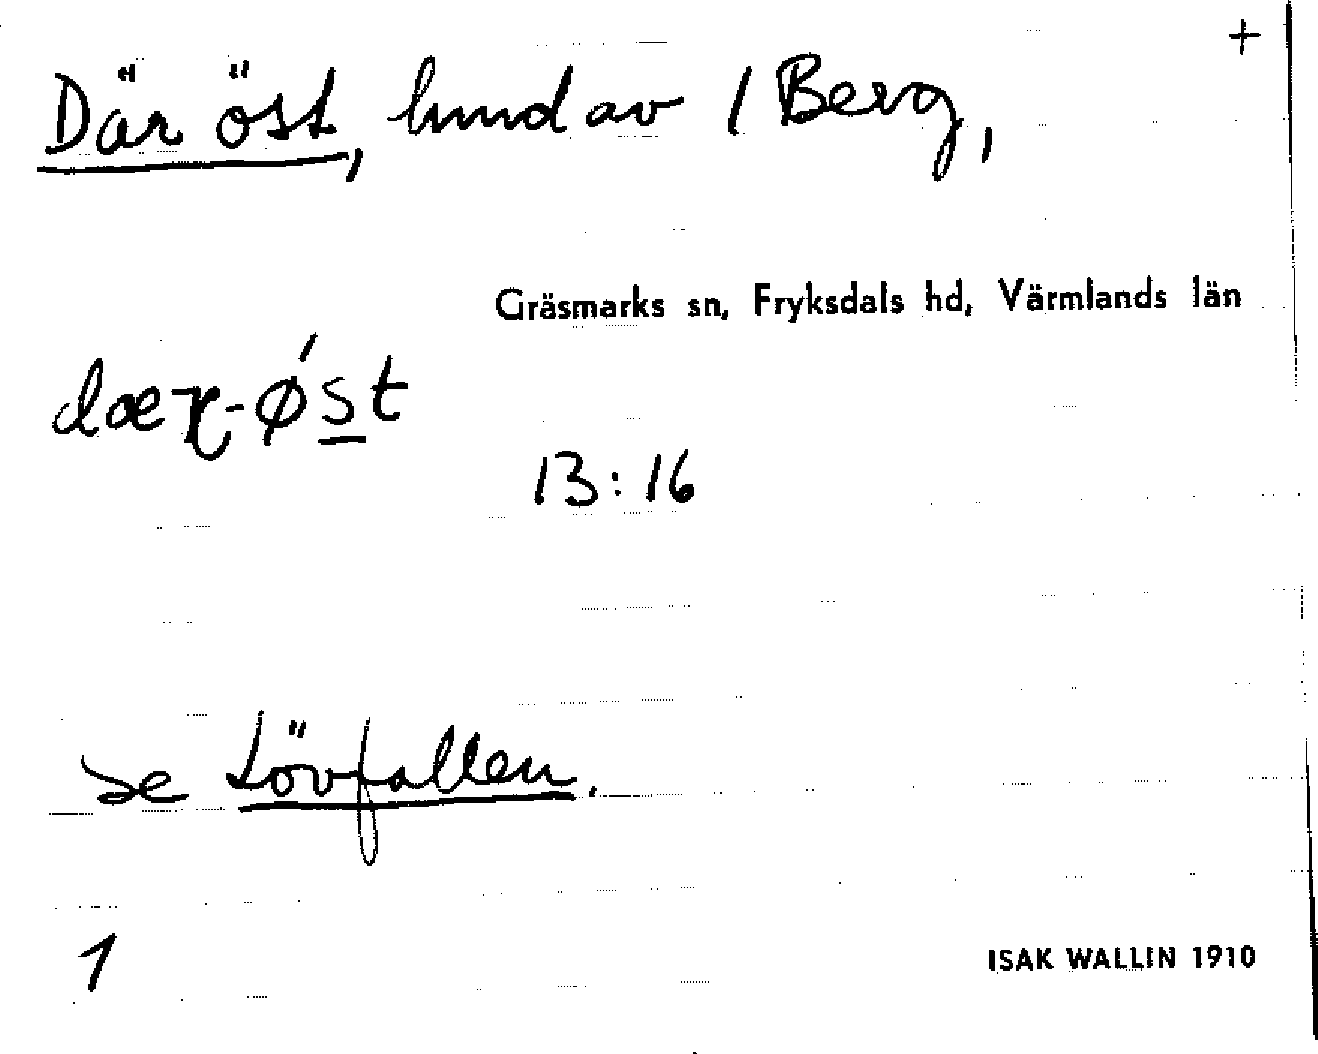 +
Där öst, hmd av 1 Berg,
Gräsmarks sn, Fryksdals hd, Värmlands län
dær-ǿst
13:16
se Lövfallen.
1
ISAK WALLIN 1910